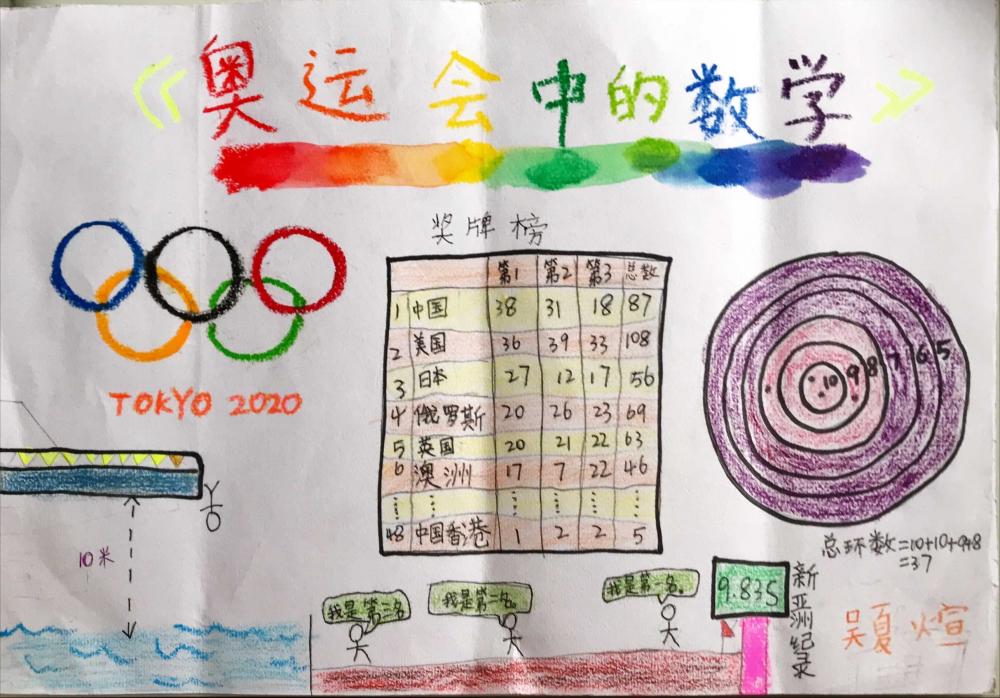 《奥运会中的数学》
奖牌榜
第1 第2 第3 总数
1 中国 38 31 18 87
2 美国 36 39 33 108
3 日本 27 12 17 56
4 俄罗斯 20 26 23 69
5 英国 20 21 22 63
6 澳洲 17 7 22 46
⋮ ⋮ ⋮ ⋮ ⋮ ⋮
48 中国香港 1 2 2 5
TOKYO 2020
10米
10 9 8 7 6 5
总环数=10+10+9+8
=37
我是第三名
我是第二名。
我是第一名。
9.835
新亚洲纪录
吴夏煊